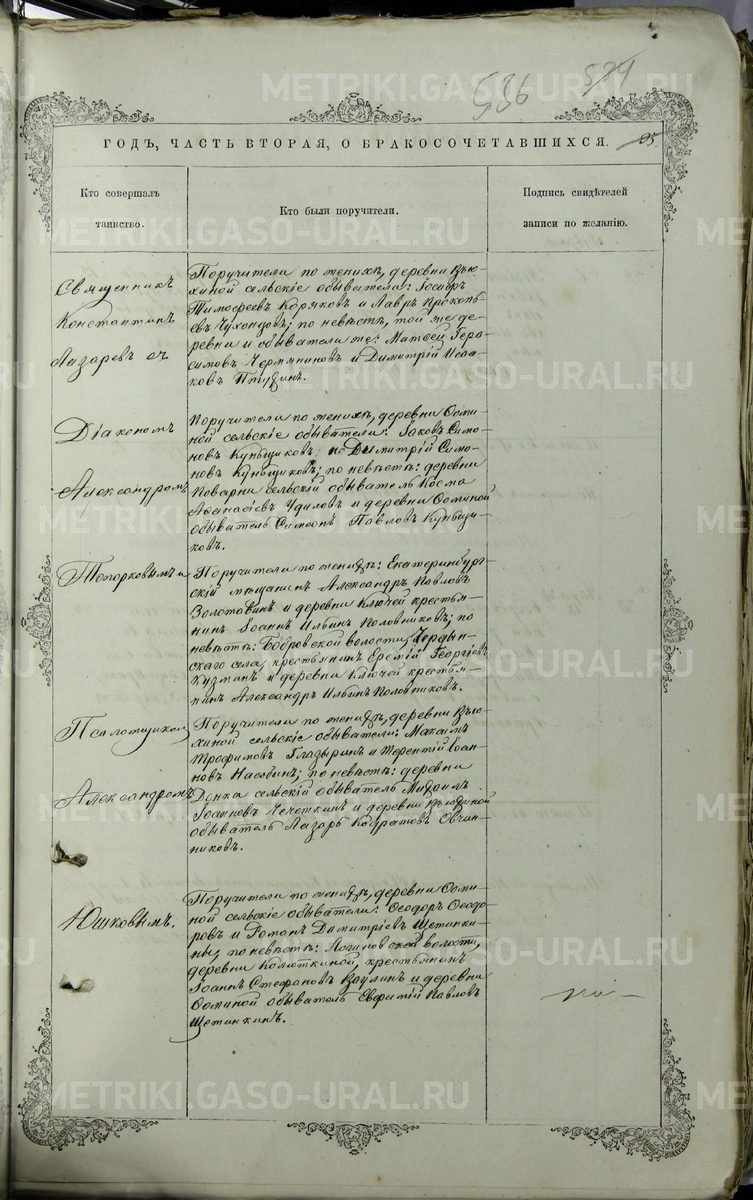 536 524
ГОДЪ, ЧАСТЬ ВТОРАЯ, О БРАКОСОЧЕТАВШИХСЯ.
Кто совершалъ
таинство.
Кто были поручители.
Подпись свидѣтелей
записи по желанію.
Священникъ
Константинъ
Лазаревъ съ
Діакономъ
Александромъ
Топорковымъ и
Псаломщикомъ
Александромъ
Юшковымъ.
Поручители по женихѣ, деревни Вью-
хиной сельскіе обыватели: Іосифъ
Тимоѳеевъ Коряковъ и Лавръ Прокопь-
евъ Чухонцовъ; по невѣстѣ, той же де-
ревни и обыватели те: Матвей Гера-
симовъ Чермяниновъ и Димитрій Исаа-
ковъ Птухинъ.
Поручители по женихѣ, деревни Осми-
ной сельскіе обыватели: Іаковъ Симо-
новъ Кунгщиковъ и Димитрій Симо-
новъ Кунгщиковъ; по невѣстѣ: деревни
Поварни сельскій обыватель Косма
Аѳанасіевъ Удиловъ и деревни Осминой
обыватель Симеонъ Павловъ Кунгщи-
ковъ.
Поручители по женихѣ: Екатеринбург-
скій мѣщанинъ Александръ Павловъ
Золотавинъ и деревни Ключей крестья-
нинъ Іоаннъ Ильинъ Половниковъ; по
невѣстѣ: Бобровской волости,
скаго села, крестьянинъ Еремій Георгіевъ
Кузминъ и деревни Ключей крестья-
нинъ Александръ Ильинъ Половниковъ.
Поручители по женихѣ, деревни Вью-
хиной сельскіе обыватели: Максимъ
Трофимовъ Глазыринъ и Терентій Іоан-
новъ по невѣстѣ: деревни
сельскій обыватель Михаилъ
Іоанновъ Чечеткинъ и деревни Вьюхиной
обыватель Лазарь Кодратовъ Овчин-
никовъ.
Поручители по женихѣ, деревни Осми-
ной сельскіе обыватели: Ѳеодоръ Ѳеодо-
ровъ и Романъ Димитріевъ Щетинки-
ны; по невѣстѣ: Логиновской волости,
деревни Колюткиной, крестьянинъ
Іоаннъ Стефановъ Ваулинъ и деревни
Осминой обыватель Евфимій Павловъ
Щетинкинъ.
METRIKI.GASO-URAL.RU